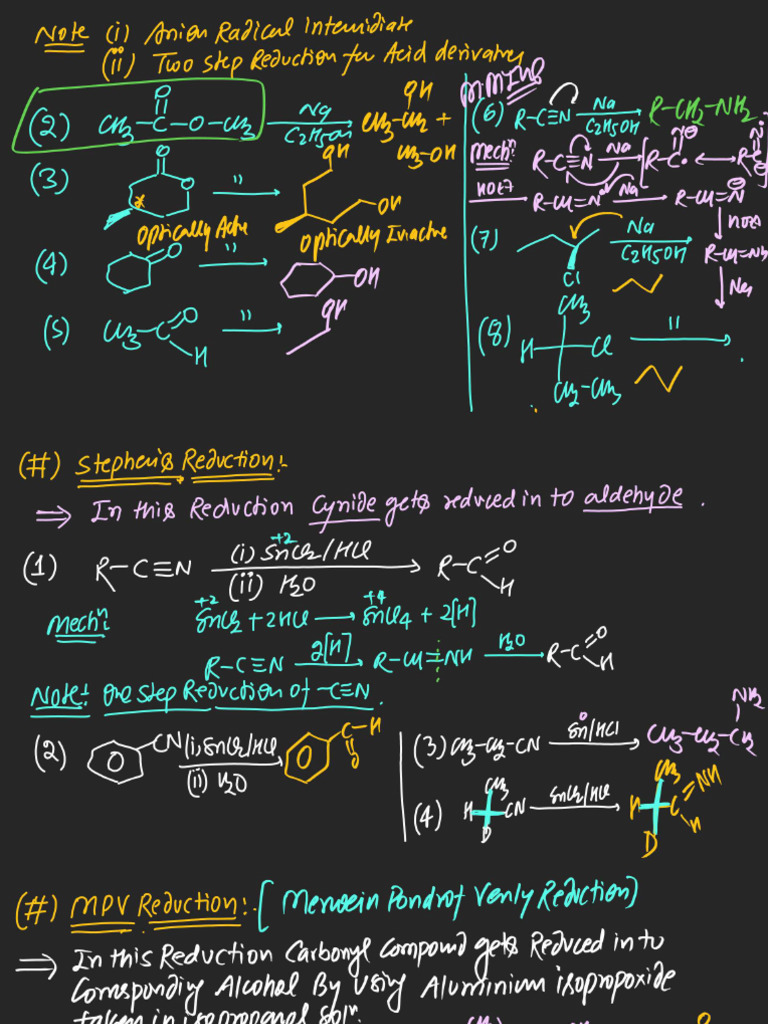 Note (i) Anion Radical Intermidiate
(ii) Two step Reduction for Acid derivatives
(2) CH3-C(=O)-O-CH3 Na C2H5OH CH3-CH2 OH +
CH3-OH
(3) O O * " OH OH
optically Active optically Inactive
(4) O " OH
(5) CH3-C O H " OH
(6) R-C≡N Na C2H5OH R-CH2-NH2
Mech: R-C≡N Na
HOEt R-CH=N Na R-CH=N
HOEt
R-CH=NH
Na
(7) Cl Na C2H5OH
(8) CH3 H Cl CH2-CH3 "
(#) Stephen's Reduction:-
⇒ In this Reduction Cynide gets reduced in to aldehyde.
(1) R-C≡N (i) SnCl2/HCl +2 (ii) H2O → R-C O H
Mechn: +2 SnCl2 + 2HCl → +4 SnCl4 + 2[H]
R-C≡N 2[H] → R-CH=NH H2O → R-C O H
Note: one step Reduction of -C≡N.
(2) CN (i) SnCl2/HCl (ii) H2O C-H O
(3) CH3-CH2-CN Sn/HCl → CH3-CH2-CH2 NH2
(4) CH3 H CN D SnCl2/HCl → CH3 H C NH H D
(#) MPV Reduction:- [Merwein Pondrof Venly Reduction)
⇒ In this Reduction Carbonyl Compound gets Reduced in to
Corresponding Alcohal By Using Aluminium isopropoxide
taken in isopropanol Soln.